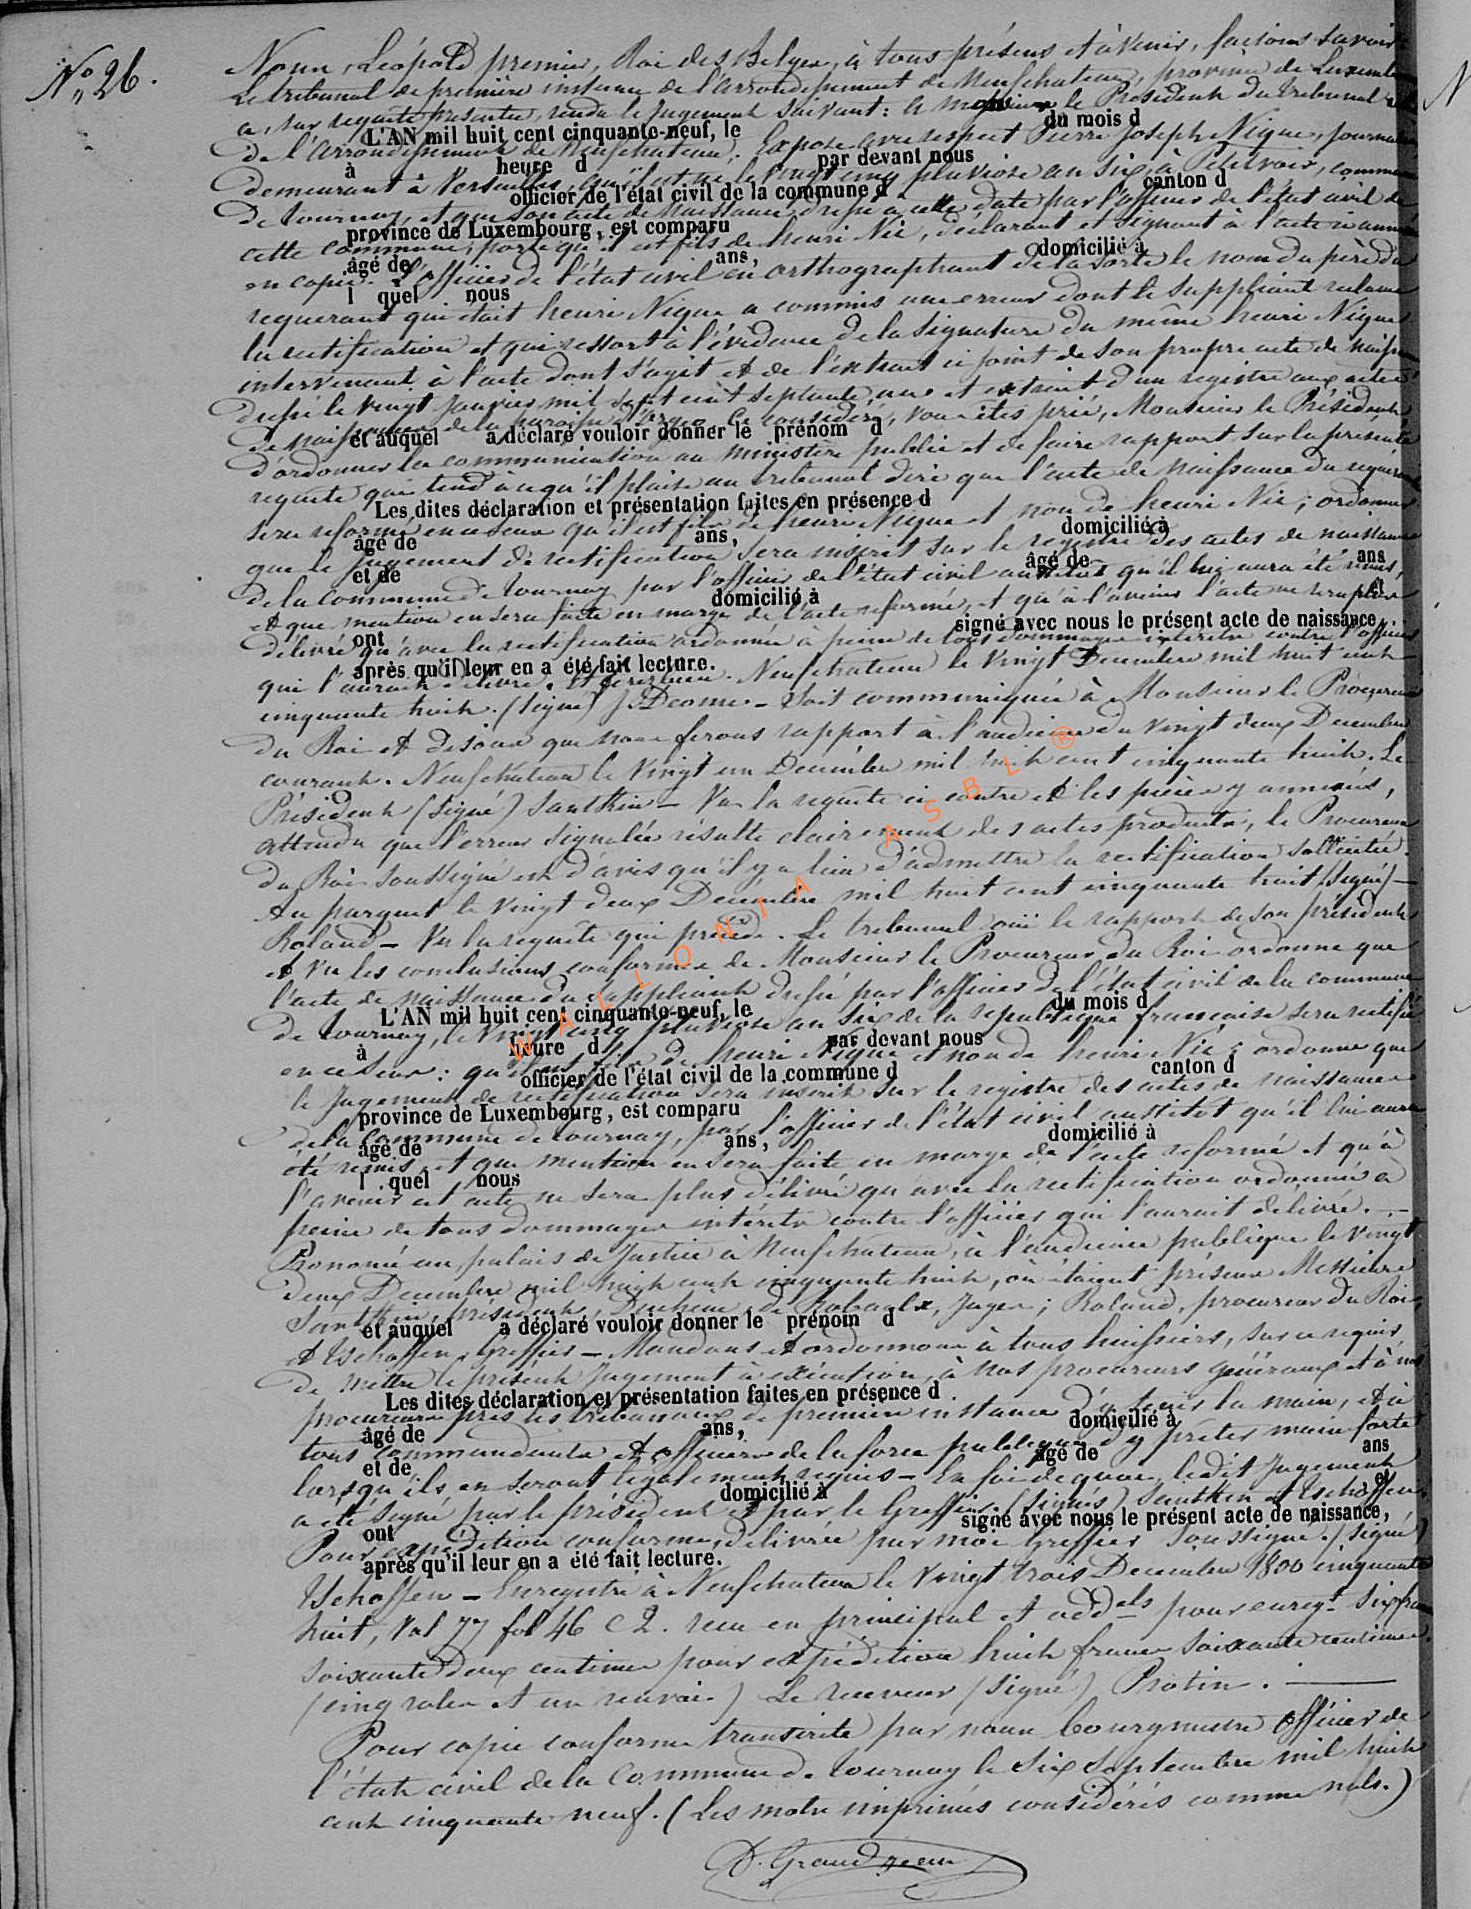 N° 26.
Nous, Léopold premier, Roi des Belges, à tous présens et à venir, faisons savoir
Le tribunal de première instance de l'arrondissement de Neufchateau, province de Luxembourg
a, sur requête présentée, rendu le jugement suivant : A Monsieur le Président du tribunal
L'AN mil huit cent cinquante-neuf, le du mois d
de l'arrondissement de Neufchateau. Expose avec respect Pierre Joseph Nigue, journalier
à heure d par devant nous
demeurant à Versailles, qu'il est né le vingt cinq pluviose an six, à Petitvoir, commune
officier de l'état civil de la commune d canton d
de Tournay, et que son acte de Naissance dressé à cette date par l'officier de l'état civil de
province de Luxembourg, est comparu
cette commune, porte qu'il est fils de henri Nie, déclarant et signant à l'acte ci annexé
âgé de ans, domicilié à
en copie. L'officier de l'état civil en orthographiant de la sorte le nom du père du
l quel nous
requerant qui était henri Nigue a commis une erreur dont le suppliant reclame
la rectification et qui ressort à l'évidence de la signature du même henri Nigue
intervenant à l'acte dont s'agit et de l'extrait ci joint de son propre acte de naissance
dressé le vingt janvier mil sept cent septante un et extrait d'un registre aux actes
de naissance de la paroisse Ce considéré, vous êtes prié, Monsieur le Président
et auquel a déclaré vouloir donner le prénom d
d'ordonner la communication au ministère public et de faire rapport sur la présente
requête qui tend à ce qu'il plaise au tribunal dire que l'acte de Naissance du requérant
Les dites déclaration et présentation faites en présence d
sera reformé en ce sens qu'il est fils de henri Nigue et non de henri Nie ; ordonner
âgé de ans, domicilié à
que le jugement de rectification sera inscrit sur le registre des actes de naissance
et de âgé de ans
de la commune de Tournay par l'officier de l'état civil aussitôt qu'il lui aura été remis,
domicilié à et
et que mention en sera faite en marge de l'acte reformé, et qu'à l'avenir l'acte ne sera plus
ont signé avec nous le présent acte de naissance,
délivré qu'avec la rectification ordonnée à peine de tous dommages intérêts contre l'officier
après qu'il leur en a été fait lecture.
qui l'aurait délivré. Neufchateau le vingt Decembre mil huit cent
cinquante huit. (signé) J. Deome - Soit communiquée à Monsieur le Procureur
du Roi et disons que nous ferons rapport à l'audience du vingt deux Decembre
courant. Neufchateau le vingt un Decembre mil huit cent cinquante huit. Le
Président (signé) Santkin - Vu la requête ci contre et les pièces y annexées,
attendu que l'erreur signalée résulte clairement des actes produits, le Procureur
du Roi soussigné est d'avis qu'il y a lieu d'admettre la rectification sollicitée.
Au parquet le vingt deux Decembre mil huit cent cinquante huit (signé) -
Roland - Vu la requête qui précède. Le tribunal ouï le rapport de son président
et vu les conclusions conformes de Monsieur le Procureur du Roi ordonne que
l'acte de naissance du suppliant dressé par l'officier de l'état civil de la commune
L'AN mil huit cent cinquante-neuf, le du mois d
de Tournay, le vingt cinq pluviose an six de la république française sera rectifié
à heure d par devant nous
en ce sens : qu'il est fils de henri Nigue et non de henri Nie ; ordonne que
officier de l'état civil de la commune d canton d
le jugement de rectification sera inscrit sur le registre des actes de naissance
province de Luxembourg, est comparu
de la commune de Tournay, par l'officier de l'état civil aussitôt qu'il lui aura
âgé de ans, domicilié à
été remis, et que mention en sera faite en marge de l'acte reformé et qu'à
l quel nous
l'avenir cet acte ne sera plus délivré qu'avec la rectification ordonnée à
peine de tous dommages intérêts contre l'officier qui l'aurait délivré. -
Prononcé au palais de Justice à Neufchateau, à l'audience publique le vingt
deux Decembre mil huit cent cinquante huit, où étaient présens Messieurs
Santkin, président, de Robaulx, Juges ; Roland, procureur du Roi,
et auquel a déclaré vouloir donner le prénom d
et Tschoffen, Greffier - Mandons et ordonnons à tous huissiers, sur ce requis,
de mettre le présent Jugement à exécution, à nos procureurs généraux et à nos
Les dites déclaration et présentation faites en présence d
procureurs près les tribunaux de première instance d'y tenir la main, et à
âgé de ans, domicilié à
tous commandants et officiers de la force publique d'y prêter main forte
et de âgé de ans
lorsqu'ils en seront légalement requis - En foi de quoi, ledit Jugement
domicilié à et
a été signé par le président et par le Greffier. (signés) Santkin et Tschoffen.
ont signé avec nous le présent acte de naissance,
Pour expédition conforme, délivrée par moi Greffier soussigné. (signé)
après qu'il leur en a été fait lecture.
Tschoffen - Enregistré à Neufchateau le vingt trois Decembre 1800 cinquante
huit, Vol 77 fol 46 C 2. reçu en principal et add.els pour enreg.t six francs
soixante deux centimes pour expédition huit francs soixante centimes.
(cinq roles et un renvoi.) Le receveur (signé) Protin. -
Pour copie conforme transcrite par nous bourgmestre officier de
l'état civil de la Commune de Tournay le six septembre mil huit
cent cinquante neuf. (Les mots imprimés considérés comme nuls.)
D. Grandjean
WALLONIA ASBL ®